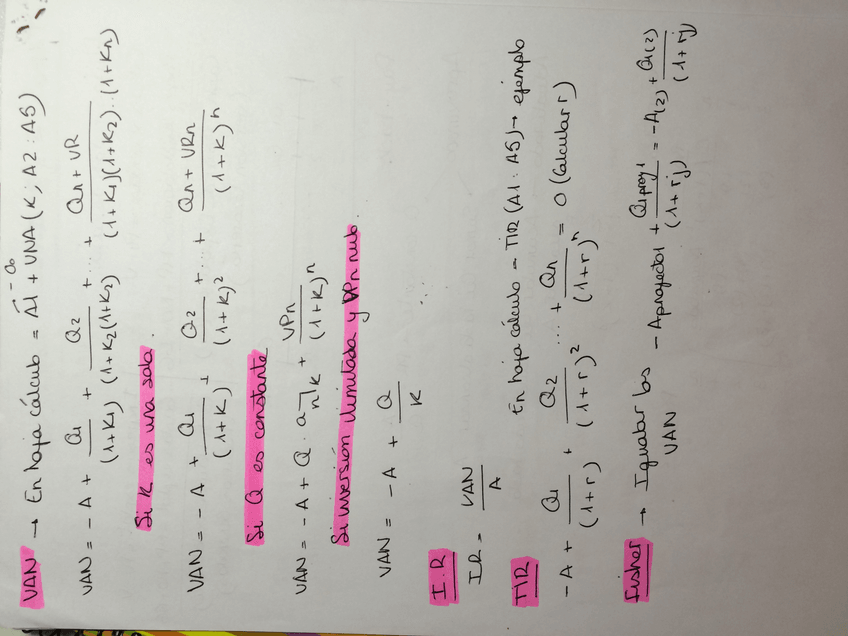 VAN → En hoja cálculo = A1 + VNA (K; A2 : A5)
VAN = -A + Q1/(1+K1) + Q2/(1+K2)(1+K2) + ... + Qn + VR/(1+K1)(1+K2)..(1+Kn)
Si K es una sola.
VAN = -A + Q1/(1+K) + Q2/(1+K)² + ... + Qn + VRn/(1+K)ⁿ
Si Q es constante
VAN = -A + Q . a n¬K + VPn/(1+K)ⁿ
Si inversión ilimitada y VPn nulo.
VAN = -A + Q/K
I.R
IR = VAN/A
TIR En hoja cálculo = TIR (A1 : A5) → ejemplo
-A + Q1/(1+r) + Q2/(1+r)² ... + Qn/(1+r)ⁿ = 0 (calcular r)
Fisher → Igualar los VAN -Aproyecto1 + Q1proy1/(1+rj) = -A(2) + Q1(2)/(1+rj)